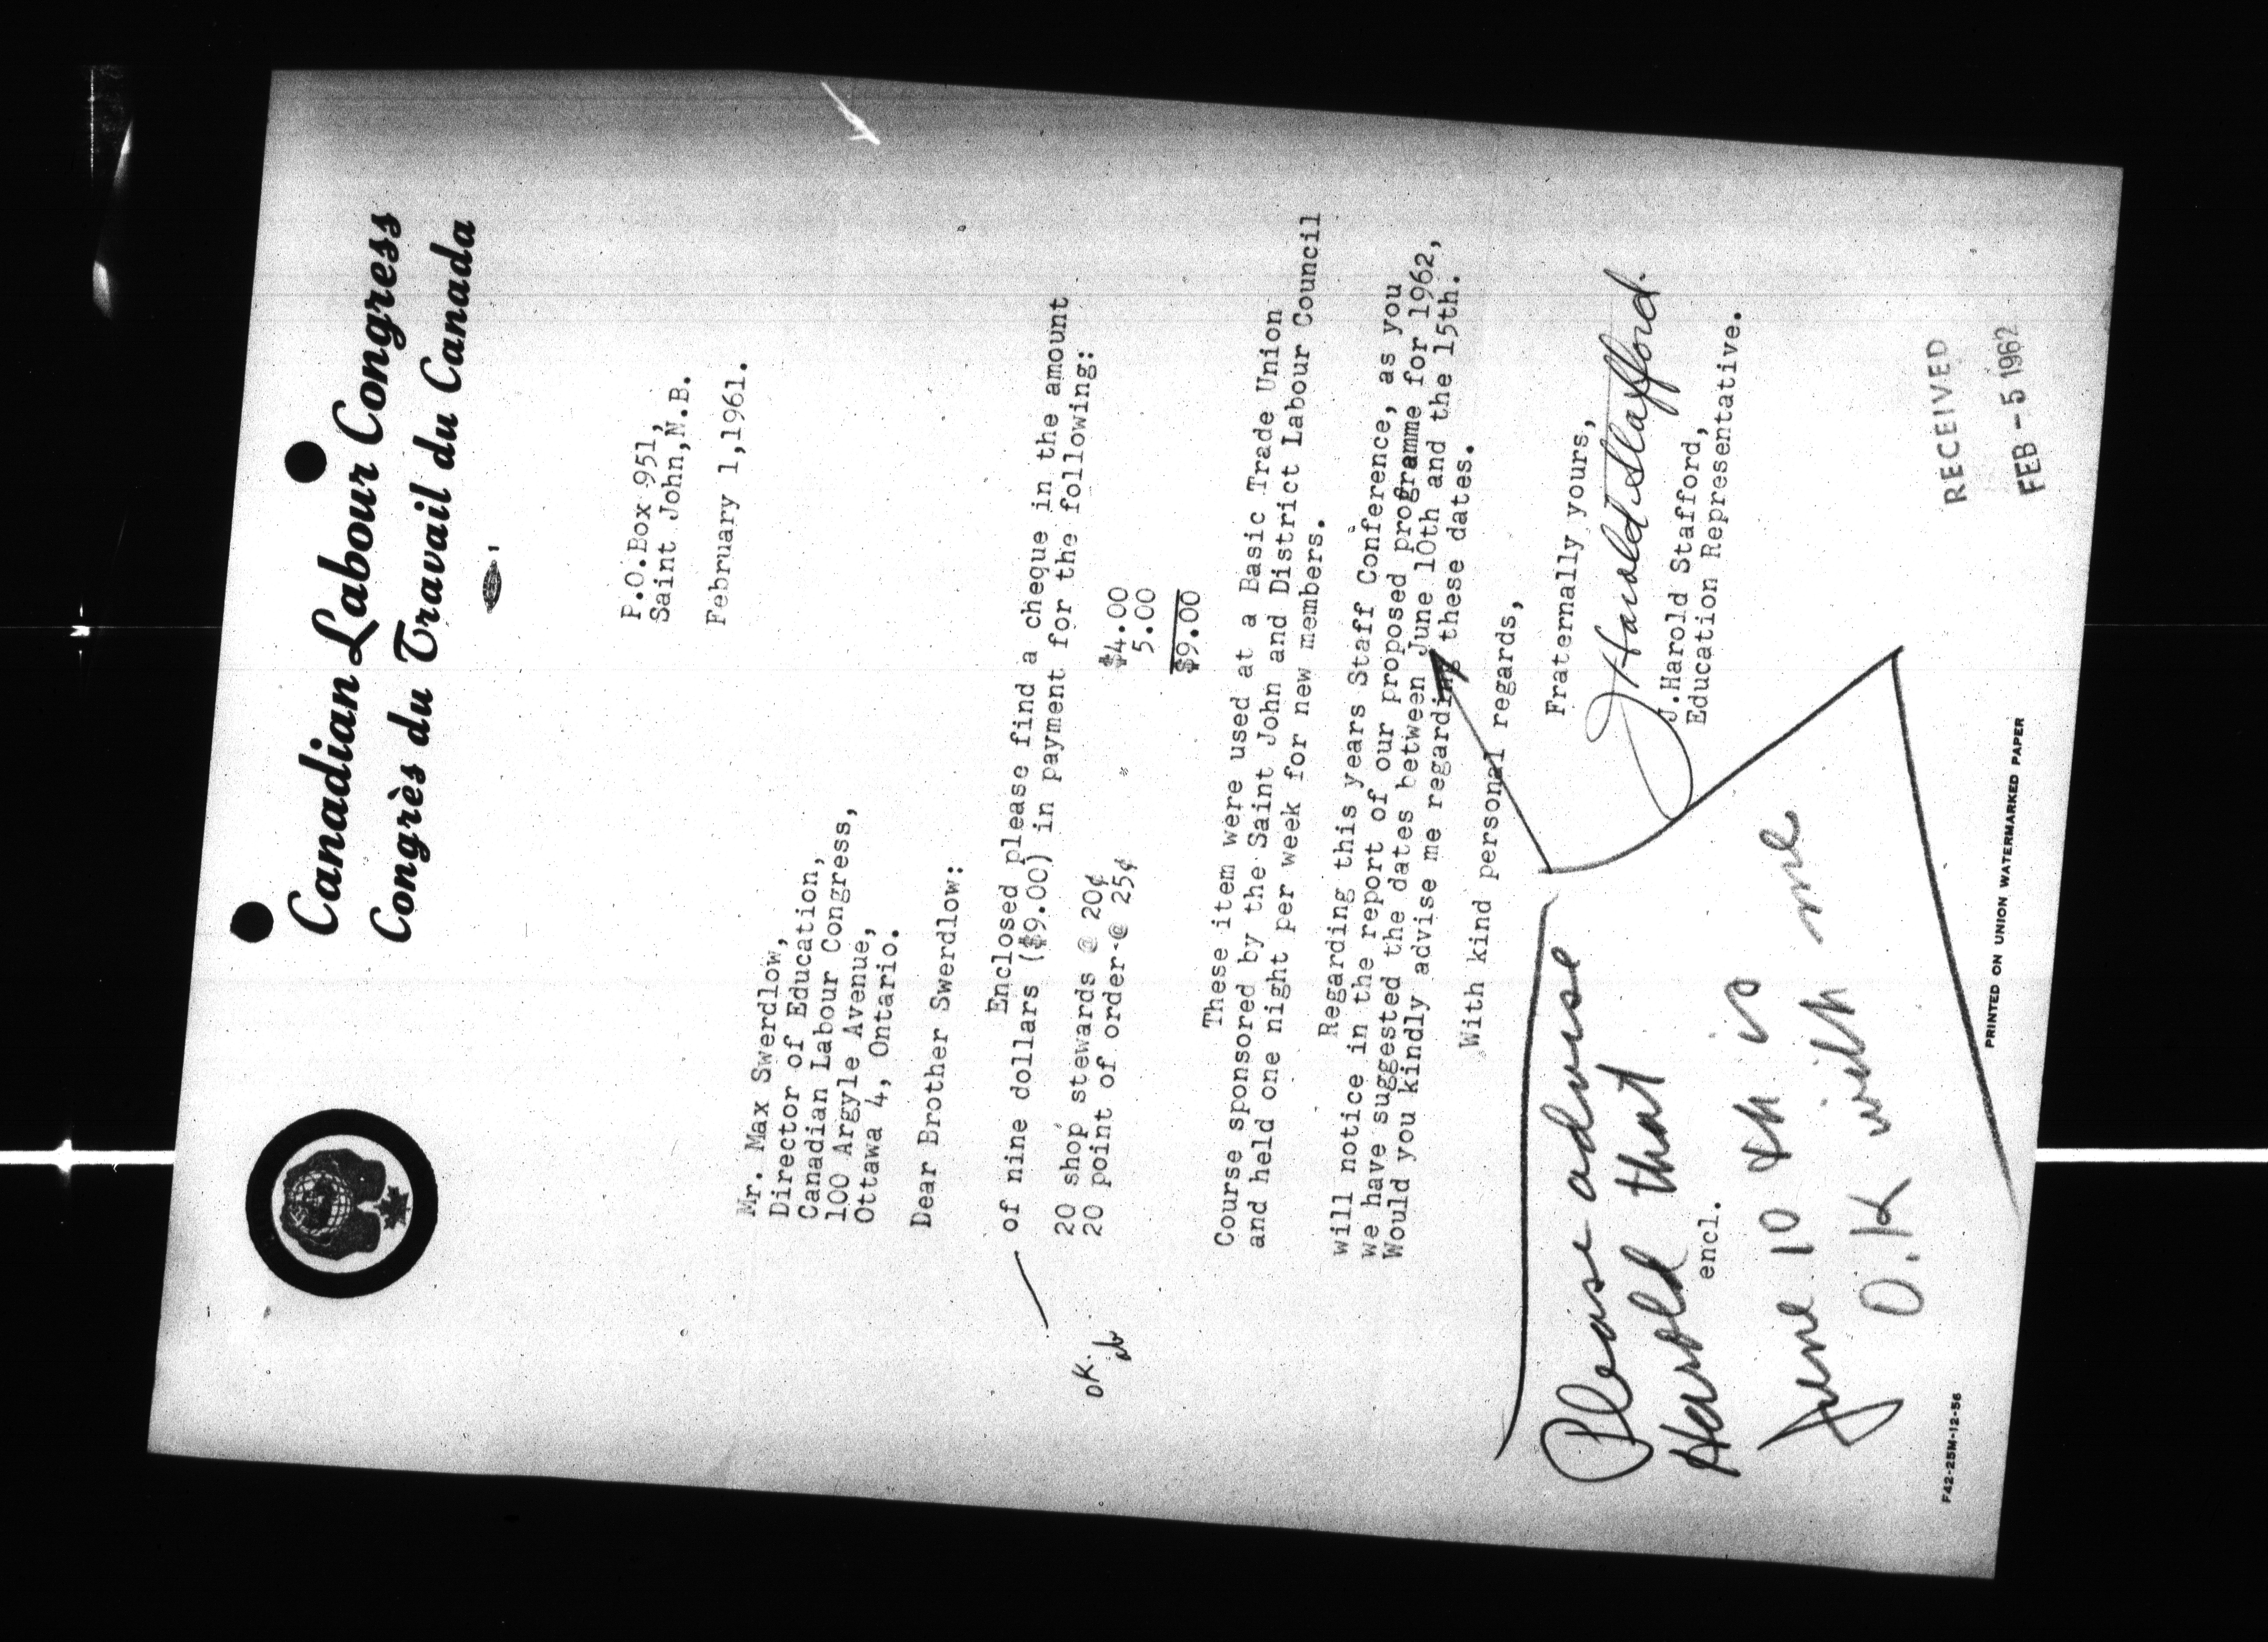 Canadian Labour Congress
Congrès du Travail du Canada
P.O.Box 951,
Saint John,N.B.
February 1,1961.
Mr. Max Swerdlow,
Director of Education,
Canadian Labour Congress,
100 Argyle Avenue,
Ottawa 4, Ontario.
Dear Brother Swerdlow:
Enclosed please find a cheque in the amount
of nine dollars ($9.00) in payment for the following:
20 shop stewards @ 20¢ $4.00
20 point of order-@ 25¢ 5.00
$9.00
OK.
These item were used at a Basic Trade Union
Course sponsored by the Saint John and District Labour Council
and held one night per week for new members.
Regarding this years Staff Conference, as you
will notice in the report of our proposed programme for 1962,
we have suggested the dates between June 10th and the 15th.
Would you kindly advise me regarding these dates.
With kind personal regards,
Fraternally yours,
J Harold Stafford.
J.Harold Stafford,
Education Representative.
Please advise
Harold that
encl.
June 10 th is
O.K with me
RECEIVED
FEB - 5 1962
F42-25M-12-56
PRINTED ON UNION WATERMARKED PAPER